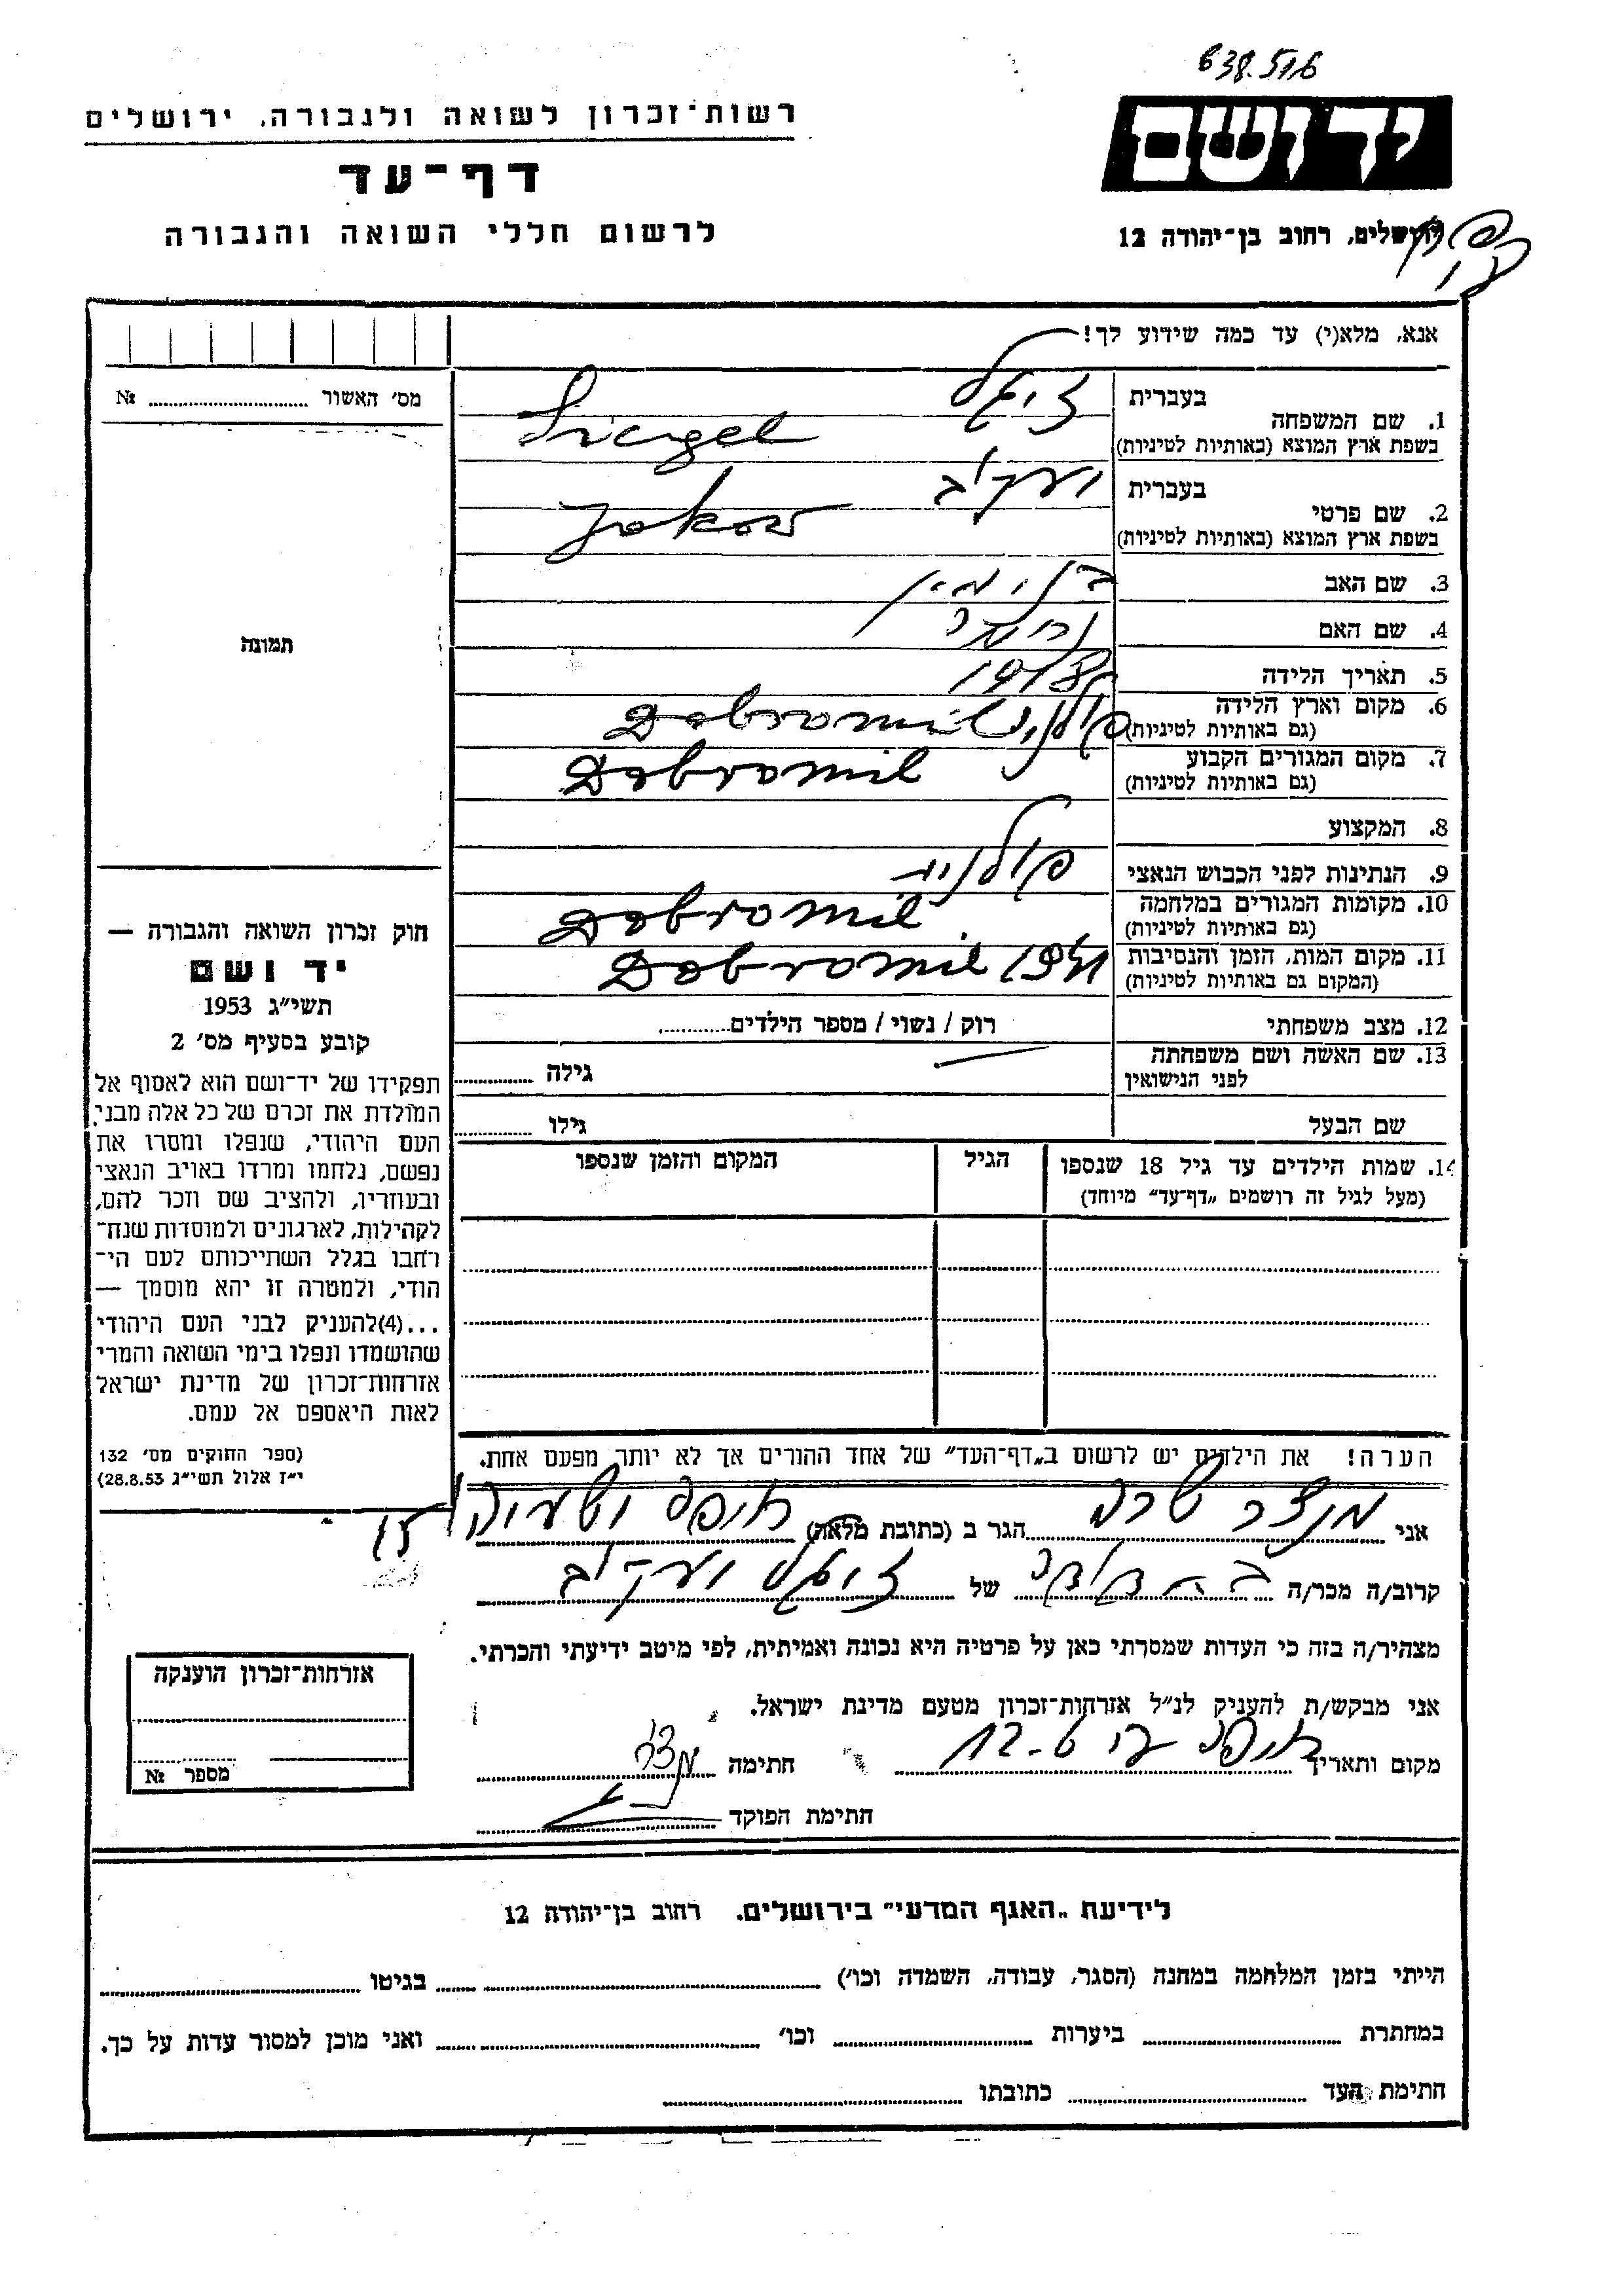 638.516
רשות־זכרון לשואה ולגבורה, ירושלים
יד ושם
דף־עד
לרשום חללי השואה והגבורה
ירושלים, רחוב בן־יהודה 12
אנא, מלא(י) עד כמה שידוע לך!
מס׳ האשור ........ №
1. שם המשפחה
בעברית
זיגל
בשפת ארץ המוצא (באותיות לטיניות)
Siegel
2. שם פרטי
בעברית
יעקב
בשפת ארץ המוצא (באותיות לטיניות)
Jakow
3. שם האב
בנימין
4. שם האם
5. תאריך הלידה
1918
6. מקום וארץ הלידה
(גם באותיות לטיניות)
פולניה Dobromil
7. מקום המגורים הקבוע
(גם באותיות לטיניות)
Dobromil
8. המקצוע
9. הנתינות לפני הכבוש הנאצי
פולנית
10. מקומות המגורים במלחמה
(גם באותיות לטיניות)
Dobromil
11. מקום המות, הזמן והנסיבות
(המקום גם באותיות לטיניות)
Dobromil 1941
12. מצב משפחתי
רוק / נשוי / מספר הילדים........
13. שם האשה ושם משפחתה
לפני הנישואין
גילה ........
שם הבעל
גילו ........
14. שמות הילדים עד גיל 18 שנספו
(מעל לגיל זה רושמים „דף־עד״ מיוחד)
הגיל
המקום והזמן שנספו
תמונה
חוק זכרון השואה והגבורה —
יד ושם
תשי״ג 1953
קובע בסעיף מס׳ 2
תפקידו של יד־ושם הוא לאסוף אל
המולדת את זכרם של כל אלה מבני
העם היהודי, שנפלו ומסרו את
נפשם, נלחמו ומרדו באויב הנאצי
ובעוזריו, ולהציב שם וזכר להם,
לקהילות, לארגונים ולמוסדות שנח־
רחבו בגלל השתייכותם לעם הי־
הודי, ולמטרה זו יהא מוסמך —
...(4)להעניק לבני העם היהודי
שהושמדו ונפלו בימי השואה והמרי
אזרחות־זכרון של מדינת ישראל
לאות היאספם אל עמם.
(ספר החוקים מס׳ 132
י״ז אלול תשי״ג 28.8.53)
הערה! את הילדים יש לרשום ב„דף־העד״ של אחד ההורים אך לא יותר מפעם אחת.
אני מנצר שרה הגר ב (כתובת מלאה) חיפה
קרוב/ה מכר/ה של זיגל יעקב
מצהיר/ה בזה כי העדות שמסרתי כאן על פרטיה היא נכונה ואמיתית, לפי מיטב ידיעתי והכרתי.
אני מבקש/ת להעניק לנ״ל אזרחות־זכרון מטעם מדינת ישראל.
מקום ותאריך חיפה חתימה
חתימת הפוקד
אזרחות־זכרון הוענקה
מספר №
לידיעת „האגף המדעי״ בירושלים, רחוב בן־יהודה 12
הייתי בזמן המלחמה במחנה (הסגר, עבודה, השמדה וכו׳) ........ בגיטו ........
במחתרת ........ ביערות ........ וכו׳ ........ ואני מוכן למסור עדות על כך.
חתימת העד ........ כתובתו ........